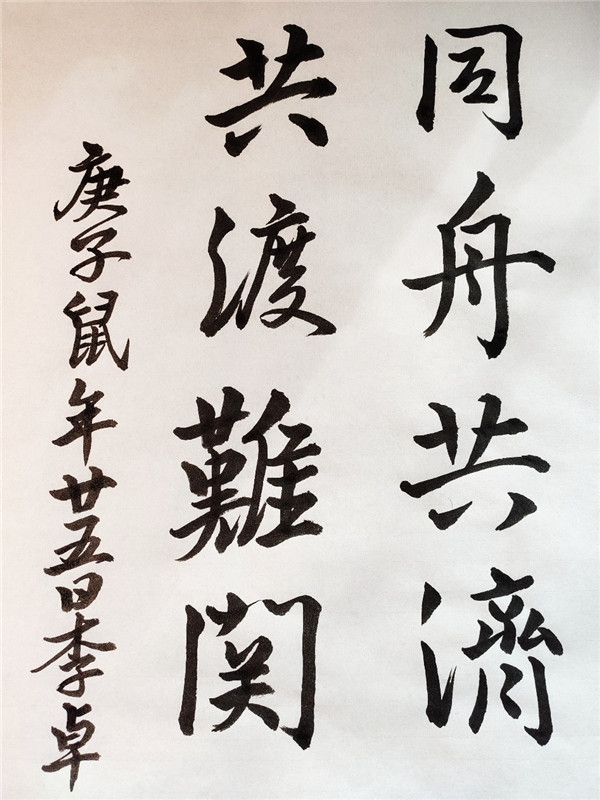 同舟共濟
共渡難関
庚子鼠年廿五日李卓